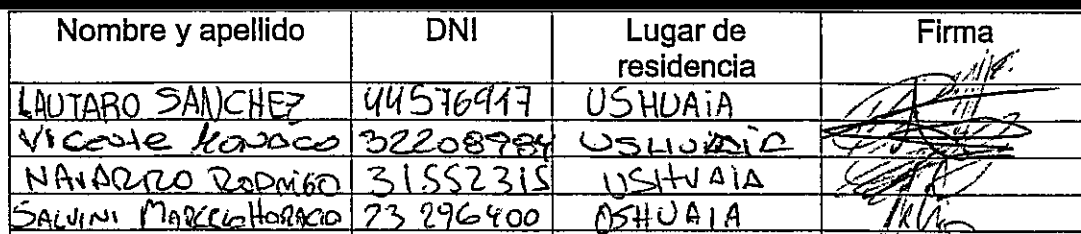 Nombre y apellido DNI Lugar de residencia Firma
LAUTARO SANCHEZ 44576947 USHUAiA
Vicente Monaco 32208984 USHUAiA
NAVARRO RODRIGO 31552315 USHUAIA
SALVINI MARCELO HORACIO 23 296400 USHUAIA